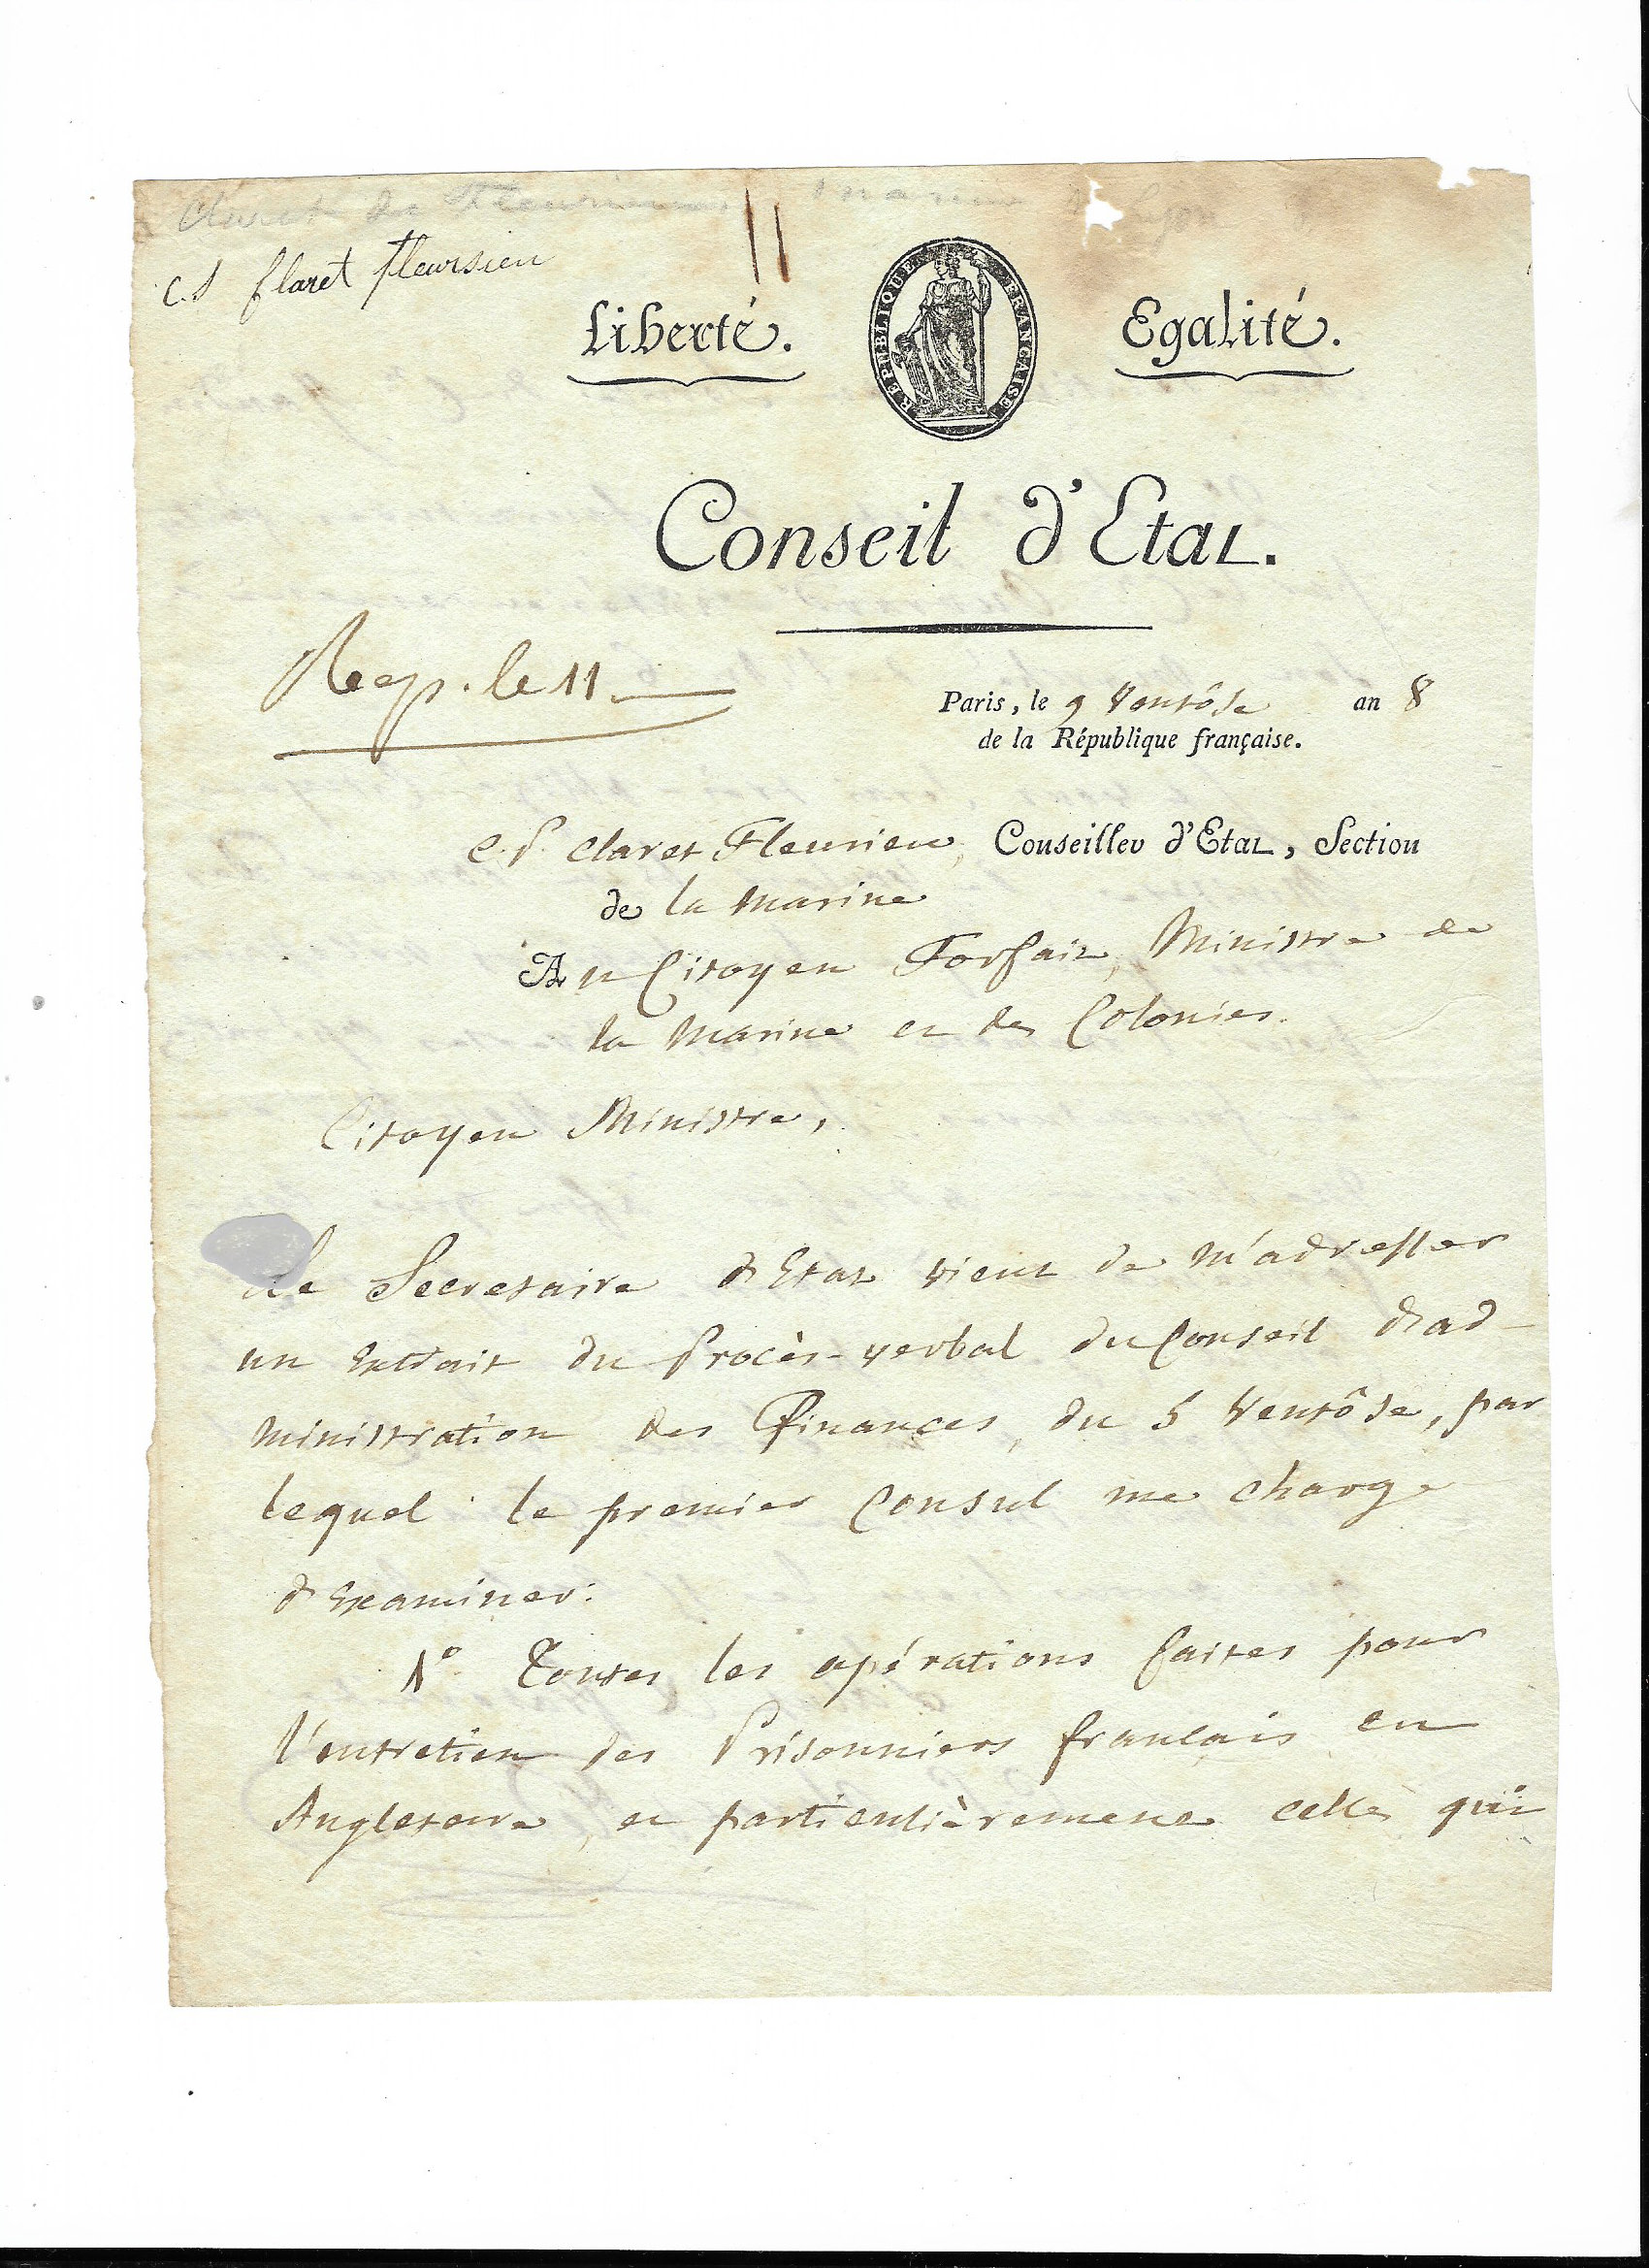 Claret de Fleurieu marine Lyon
C. S flaret fleursieu
11
Liberté. Egalité.
REPUBLIQUE FRANCAISE
Conseil d'Etat.
Rep. le 11
Paris, le 9 Ventôse an 8
de la République française.
C. P. Claret Fleurieu, Conseiller d'Etat, Section
de la Marine
Au Citoyen Forfait, Ministre de
la Marine et des Colonies.
Citoyen Ministre,
Le Secretaire d'Etat vient de m'adresser
un Extrait du Procès-verbal du Conseil d'ad-
ministration des Finances, du 5 Ventôse, par
lequel le premier Consul me charge
d'Examiner:
1º Toutes les opérations faites pour
l'entretien des Prisonniers français en
Angleterre, et particulièrement celles qui